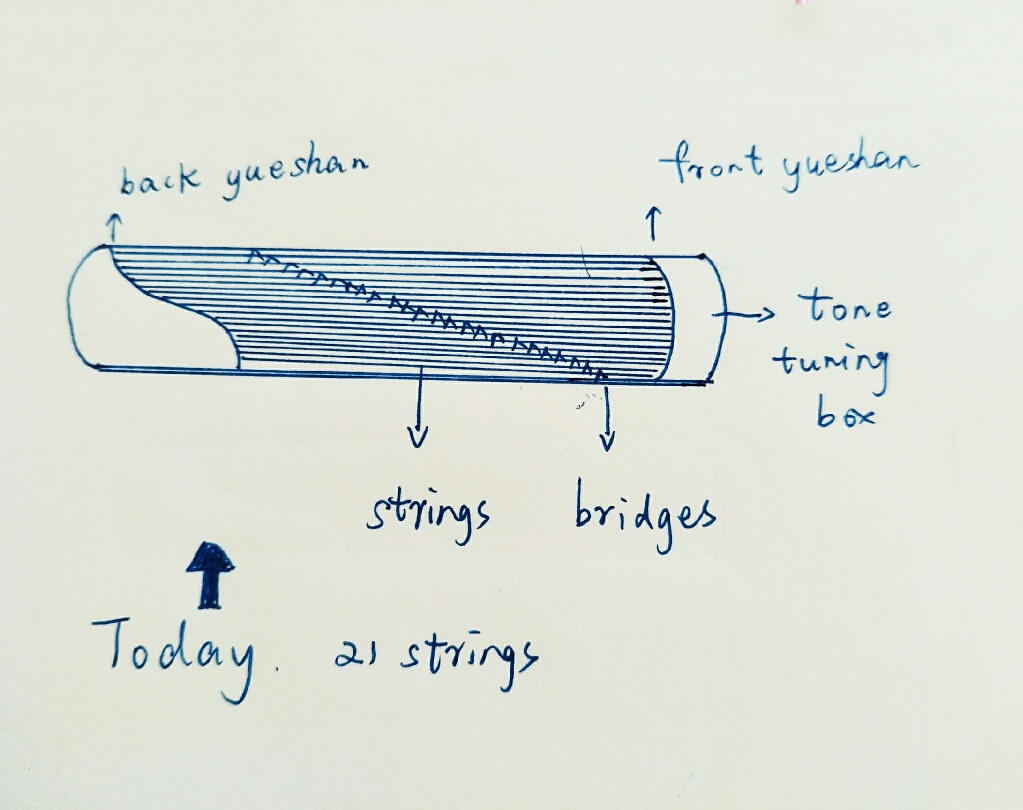 back yueshan
front yueshan
tone
tuning
box
strings
bridges
Today. 21 strings